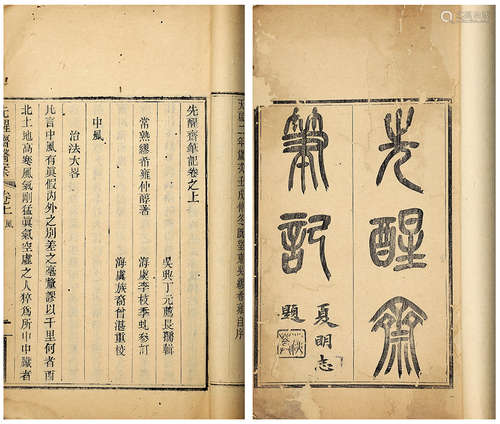 先醒齋
筆記
夏明志
題
先醒齋筆記卷之上
吳興丁元薦長孺輯
常熟繆希雍仲醇著
海虞李枝季虬參訂
海虞族裔曾湛重校
中風
治法大畧
凡言中風有真假內外之別差之毫釐謬以千里何者西
北土地高寒風氣剛猛眞氣空虛之人猝爲所中中臟者